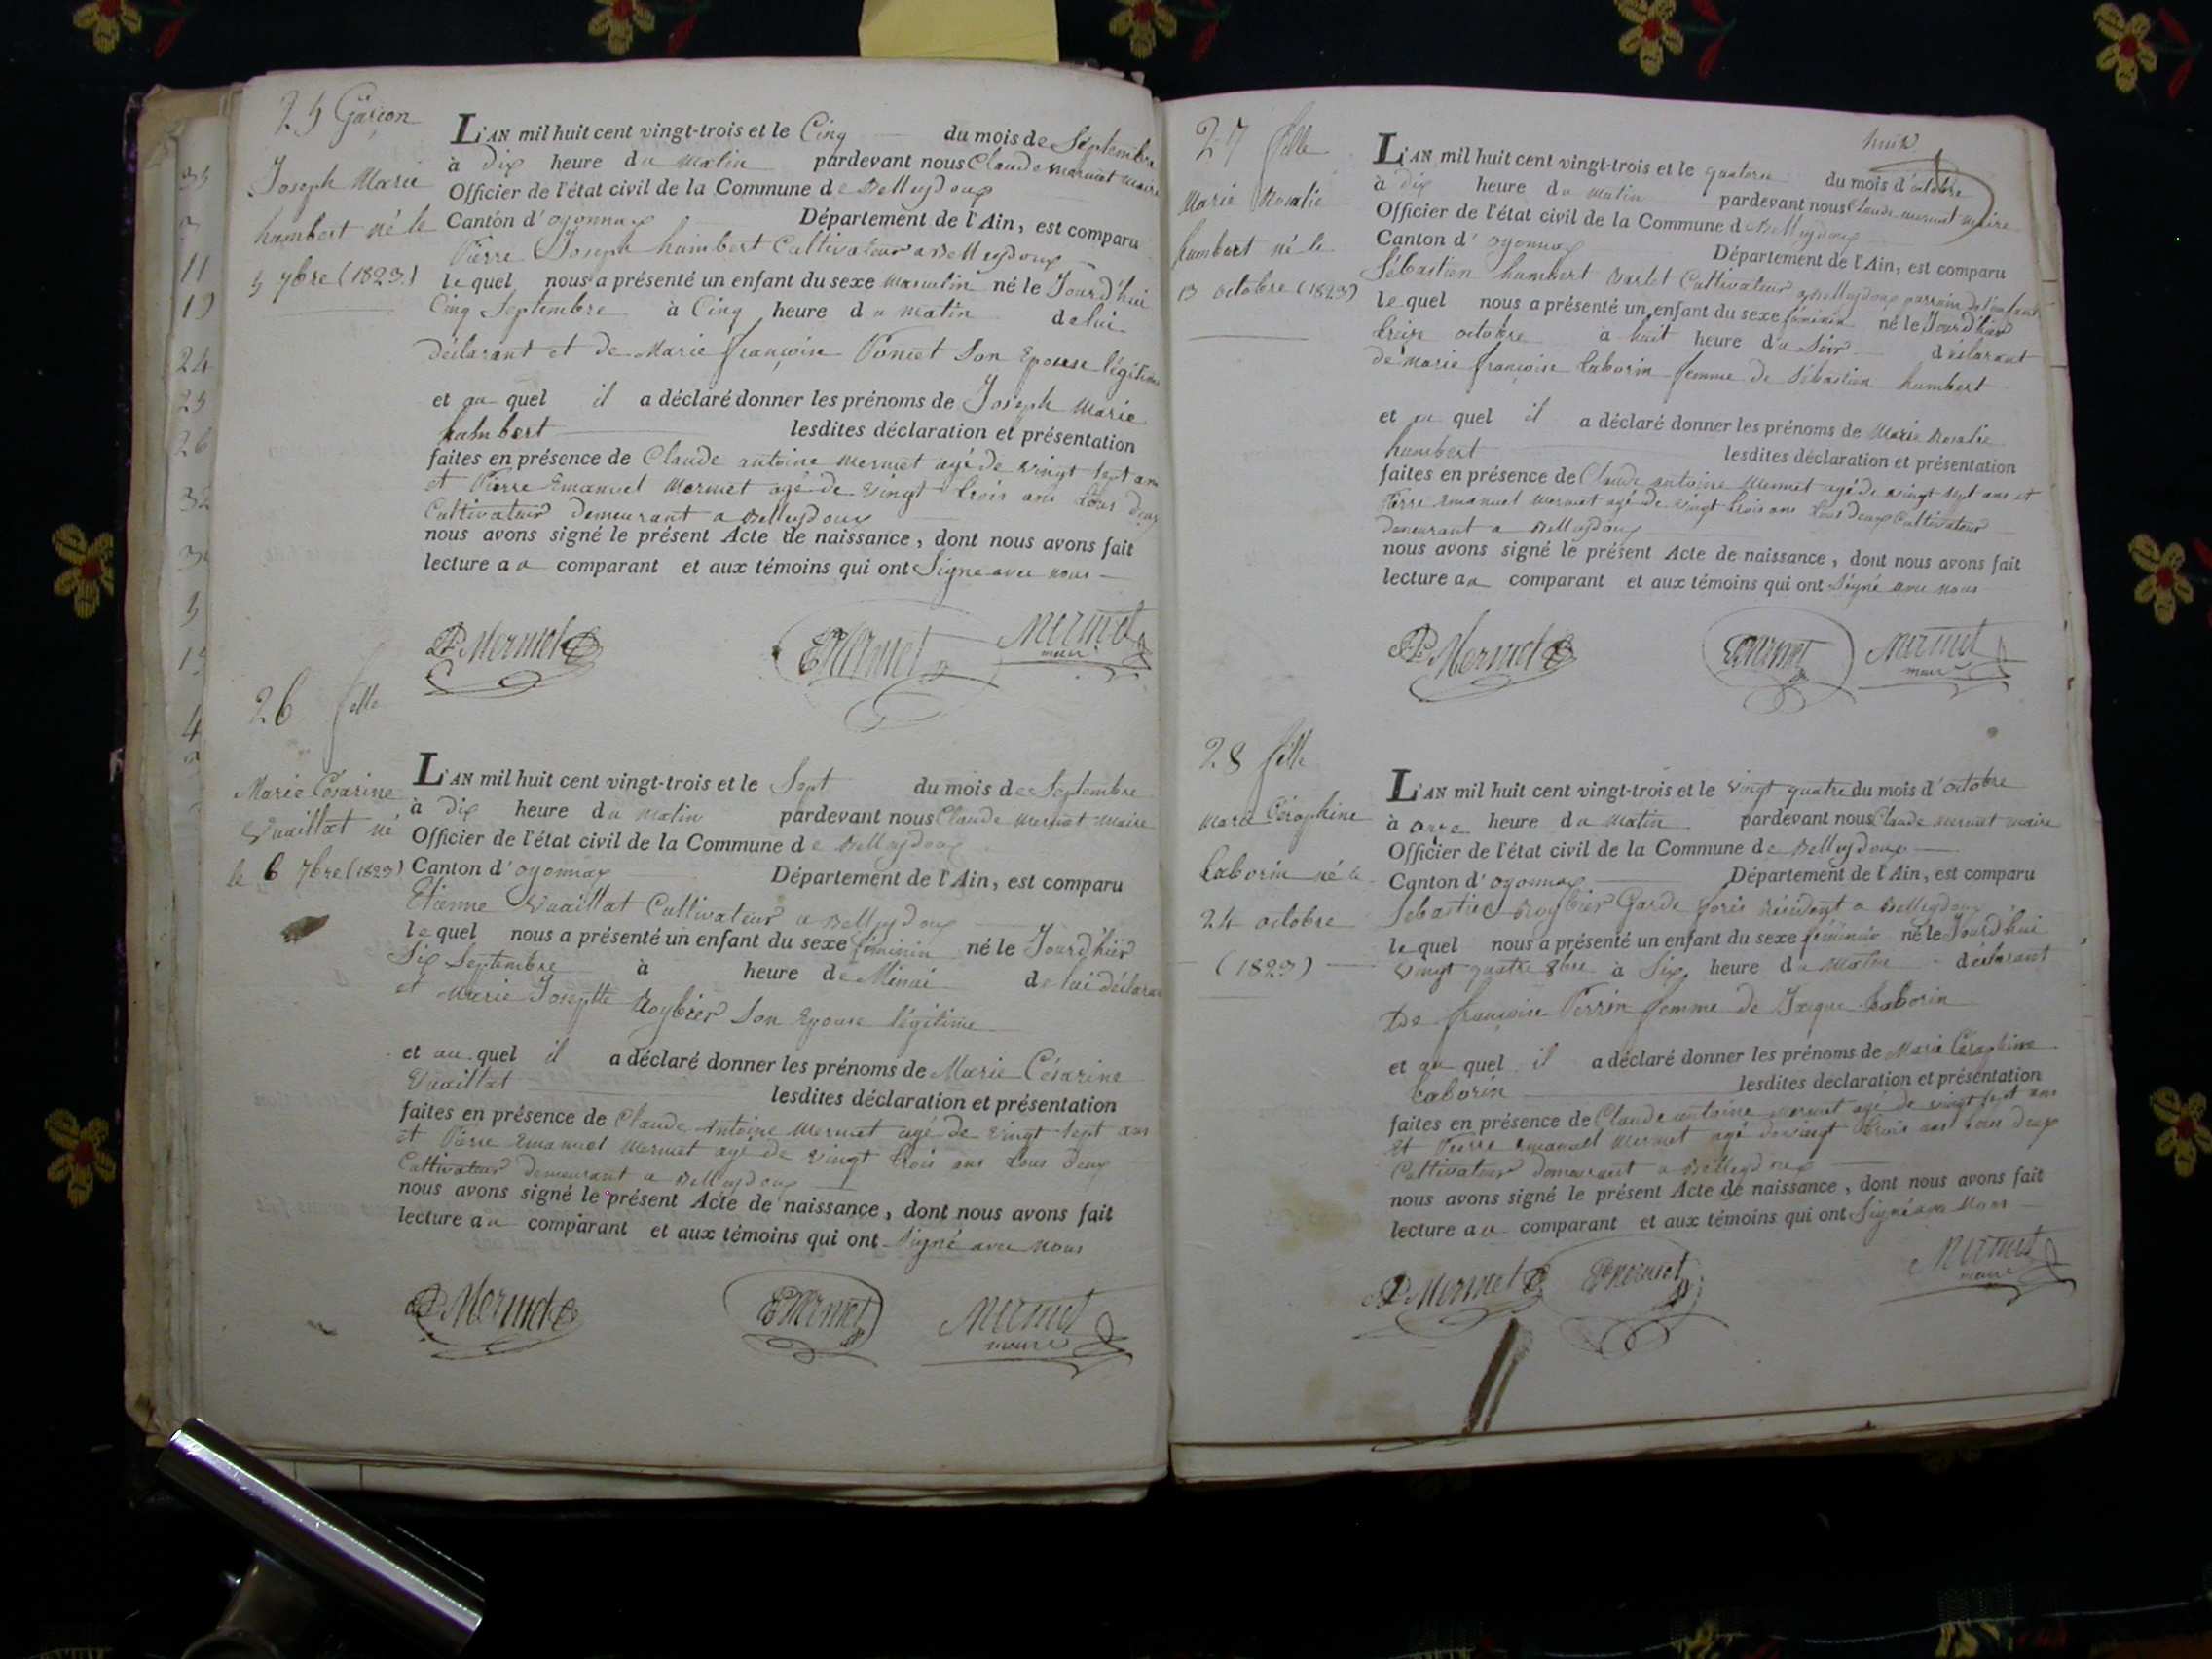 25 Garçon
Joseph Marie
humbert né le
5 7bre (1823)
L'AN mil huit cent vingt-trois et le Cinq du mois de Septembre
à dix heure du matin pardevant nous Claude mermet maire
Officier de l'état civil de la Commune de Belleydoux
Canton d'oyonnax Département de l'Ain, est comparu
Pierre Joseph humbert Cultivateur a Belleydoux
lequel nous a présenté un enfant du sexe masculin né le Jourd'hui
Cinq Septembre à Cinq heure du matin de lui
déclarant et de Marie françoise Poncet Son Epouse légitime
et au quel il a déclaré donner les prénoms de Joseph Marie
humbert lesdites déclaration et présentation
faites en présence de Claude antoine Mermet agé de vingt Sept ans
et Pierre Emanuel Mermet agé de vingt trois ans tous deux
Cultivateur demeurant a Belleydoux
nous avons signé le présent Acte de naissance, dont nous avons fait
lecture au comparant et aux témoins qui ont Signe avec nous
Mermet EMermet Mermet
maire
26 fille
Marie Césarine
Vuaillat né
le 6 7bre (1823)
L'AN mil huit cent vingt-trois et le Sept du mois de Septembre
à dix heure du matin pardevant nous Claude Mermet maire
Officier de l'état civil de la Commune de Belleydoux
Canton d'oyonnax Département de l'Ain, est comparu
Etienne Vuaillat Cultivateur a Belleydoux
lequel nous a présenté un enfant du sexe féminin né le Jourd'hier
Six Septembre à heure de Minui de lui déclarant
et Marie Josephte Roybier Son Epouse légitime
et au quel il a déclaré donner les prénoms de Marie Césarine
Vuaillat lesdites déclaration et présentation
faites en présence de Claude Antoine Mermet agé de vingt Sept ans
et Pierre Emanuel Mermet agé de vingt trois ans tous deux
Cultivateur demeurant a Belleydoux
nous avons signé le présent Acte de naissance, dont nous avons fait
lecture au comparant et aux témoins qui ont Signé avec nous
Mermet EMermet Mermet
maire
27 fille
Marie Rosalie
humbert né le
13 octobre (1823)
huit
L'AN mil huit cent vingt-trois et le quatorze du mois d'octobre
à dix heure du matin pardevant nous Claude mermet maire
Officier de l'état civil de la Commune de Belleydoux
Canton d'oyonnax Département de l'Ain, est comparu
Sébastien humbert Varlet Cultivateur a Belleydoux parrain de l'enfant
lequel nous a présenté un enfant du sexe féminin né le Jourd'hier
treize octobre à huit heure du Soir déclarant
de Marie françoise Caborin femme de Sébastien humbert
et au quel il a déclaré donner les prénoms de Marie Rosalie
humbert lesdites déclaration et présentation
faites en présence de Claude antoine Mermet agé de vingt Sept ans et
Pierre Emanuel Mermet agé de vingt trois ans tous deux Cultivateur
demeurant a Belleydoux
nous avons signé le présent Acte de naissance, dont nous avons fait
lecture au comparant et aux témoins qui ont Signé avec nous
Mermet EMermet Mermet
maire
28 fille
Marie Céraphine
Caborin né le
24 octobre
(1823)
L'AN mil huit cent vingt-trois et le vingt quatre du mois d'octobre
à onze heure du Matin pardevant nous Claude mermet maire
Officier de l'état civil de la Commune de Belleydoux
Canton d'oyonnax Département de l'Ain, est comparu
Sébastien Roybier Garde foris Résident a Belleydoux
lequel nous a présenté un enfant du sexe féminin né le Jourd'hui
vingt quatre 8bre à Six heure du Matin déclarant
De françoise Perrin femme de Jaque Caborin
et au quel il a déclaré donner les prénoms de Marie Céraphine
Caborin lesdites déclaration et présentation
faites en présence de Claude antoine Mermet agé de vingt Sept ans
Et Pierre Emanuel Mermet agé de vingt trois ans tous deux
Cultivateur demeurant a Belleydoux
nous avons signé le présent Acte de naissance, dont nous avons fait
lecture au comparant et aux témoins qui ont Signé avec Nous
Mermet EMermet Mermet
maire